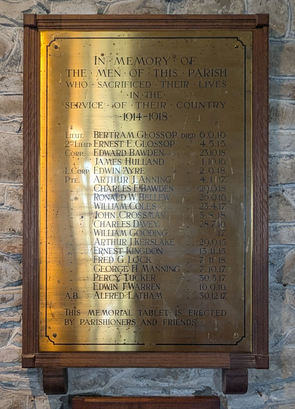 IN MEMORY OF
THE MEN OF THIS PARISH
WHO SACRIFICED THEIR LIVES
IN THE
SERVICE OF THEIR COUNTRY
1914-1918
LIEUT. BERTRAM GLOSSOP DIED
2ND LIEUT ERNEST E. GLOSSOP 4.5.15
CORP. EDWARD BAWDEN
JAMES HULLAND
L. CORP. EDWIN AYRE
PTE. ARTHUR J. ANNING
CHARLES F. BAWDEN
RONALD W. BELLEW
WILLIAM COLES
JOHN CROSSMAN
CHARLES DAVEY
WILLIAM GOODING
ARTHUR J. KERSLAKE
ERNEST KINGDON
FRED G. LOCK
GEORGE H. MANNING 7.10.17
PERCY TUCKER
EDWIN J. WARREN
A.B. ALFRED LATHAM 30.12.17
THIS MEMORIAL TABLET IS ERECTED
BY PARISHIONERS AND FRIENDS